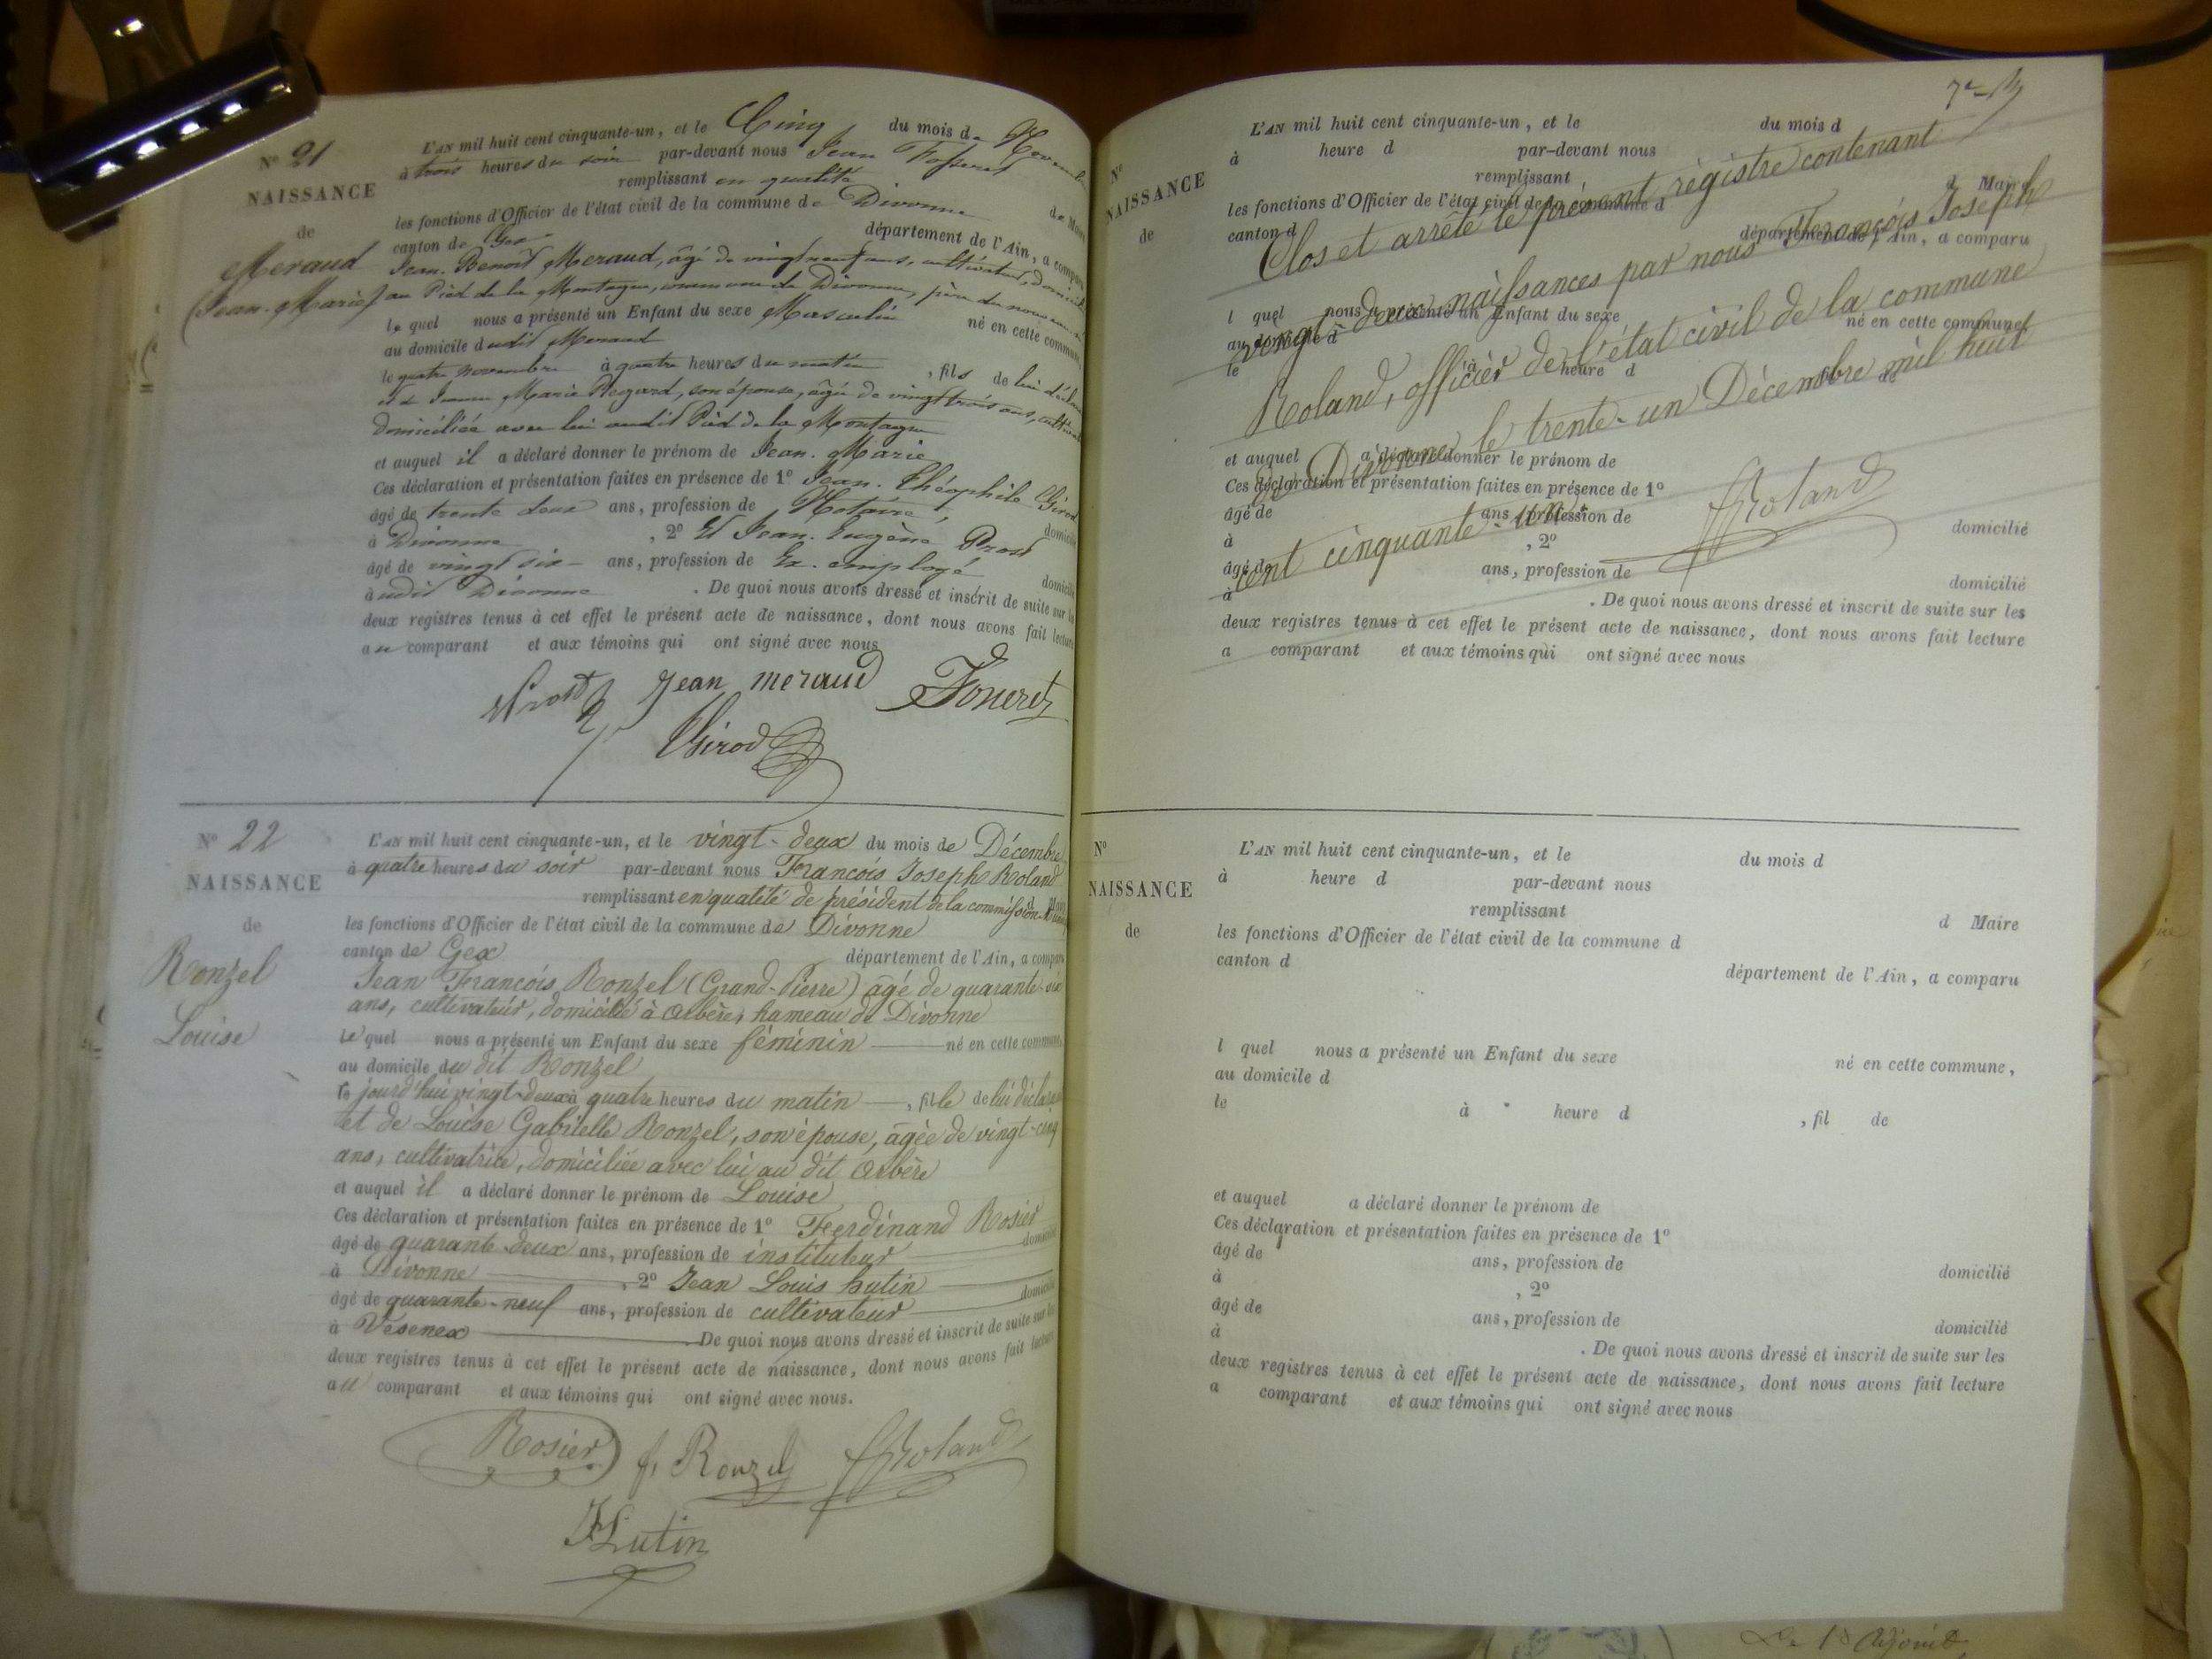 N° 21
NAISSANCE
de
Meraud
(Jean-Marie)
L'AN mil huit cent cinquante-un, et le Cinq du mois de Novembre
à trois heures du soir par-devant nous Jean
remplissant en qualité de Maire
les fonctions d'Officier de l'état civil de la commune de Divonne
canton de Gex département de l'Ain, a comparu
Jean-Benoît Meraud, âgé de vingt neuf ans, cultivateur, domicilié
au Pied de la Montagne, commune de Divonne, père du
le quel nous a présenté un Enfant du sexe Masculin né en cette commune,
au domicile dudit Meraud
le quatre novembre à quatre heures du matin, fils de lui déclarant
et de Marie Regard, son épouse, âgée de vingt trois ans,
domiciliée avec lui audit Pied de la Montagne
et auquel il a déclaré donner le prénom de Jean-Marie
Ces déclaration et présentation faites en présence de 1° Jean-Théophile Girod
âgé de trente deux ans, profession de Notaire, domicilié
à Divonne, 2° Et Jean-Eugène Prost
âgé de vingt six - ans, profession de Ex-employé domicilié
audit Divonne. De quoi nous avons dressé et inscrit de suite sur les
deux registres tenus à cet effet le présent acte de naissance, dont nous avons fait lecture
au comparant et aux témoins qui ont signé avec nous
Prost Jean meraud Foueret
Girod
N° 22
NAISSANCE
de
Ronzel
Louise
L'AN mil huit cent cinquante-un, et le vingt-deux du mois de Décembre
à quatre heures du soir par-devant nous François Joseph Roland
remplissant en qualité de président de la commission
les fonctions d'Officier de l'état civil de la commune de Divonne
canton de Gex département de l'Ain, a comparu
Jean François Ronzel (Grand-Pierre) âgé de quarante-six
ans, cultivateur, domicilié à Arbère, hameau de Divonne
Le quel nous a présenté un Enfant du sexe féminin né en cette commune,
au domicile du dit Ronzel
jourd'hui vingt-deux à quatre heures du matin, fille de lui déclarant
et de Louise Gabrielle Ronzel, son épouse, âgée de vingt-cinq
ans, cultivatrice, domiciliée avec lui au dit Arbère
et auquel il a déclaré donner le prénom de Louise
Ces déclaration et présentation faites en présence de 1° Ferdinand Rosier
âgé de quarante-deux ans, profession de instituteur domicilié
à Divonne, 2° Jean Louis Lutin
âgé de quarante-neuf ans, profession de cultivateur domicilié
à Vesenex De quoi nous avons dressé et inscrit de suite sur les
deux registres tenus à cet effet le présent acte de naissance, dont nous avons fait lecture
au comparant et aux témoins qui ont signé avec nous.
Rosier f. Ronzel Roland
Lutin
N°
NAISSANCE
de
L'AN mil huit cent cinquante-un, et le du mois d
à heure d par-devant nous
remplissant d Maire
les fonctions d'Officier de l'état civil de la commune d
canton d département de l'Ain, a comparu
l quel nous a présenté un Enfant du sexe né en cette commune,
au domicile d
le à heure d , fil de
et auquel a déclaré donner le prénom de
Ces déclaration et présentation faites en présence de 1°
âgé de ans, profession de domicilié
à , 2°
âgé de ans, profession de domicilié
à . De quoi nous avons dressé et inscrit de suite sur les
deux registres tenus à cet effet le présent acte de naissance, dont nous avons fait lecture
a comparant et aux témoins qui ont signé avec nous
Clos et arrêté le présent registre contenant
vingt-deux naissances par nous François Joseph
Roland, officier de l'état civil de la commune
de Divonne le trente-un Décembre mil huit
cent cinquante-un.
Roland
N°
NAISSANCE
de
L'AN mil huit cent cinquante-un, et le du mois d
à heure d par-devant nous
remplissant d Maire
les fonctions d'Officier de l'état civil de la commune d
canton d département de l'Ain, a comparu
l quel nous a présenté un Enfant du sexe né en cette commune,
au domicile d
le à heure d , fil de
et auquel a déclaré donner le prénom de
Ces déclaration et présentation faites en présence de 1°
âgé de ans, profession de domicilié
à , 2°
âgé de ans, profession de domicilié
à . De quoi nous avons dressé et inscrit de suite sur les
deux registres tenus à cet effet le présent acte de naissance, dont nous avons fait lecture
a comparant et aux témoins qui ont signé avec nous